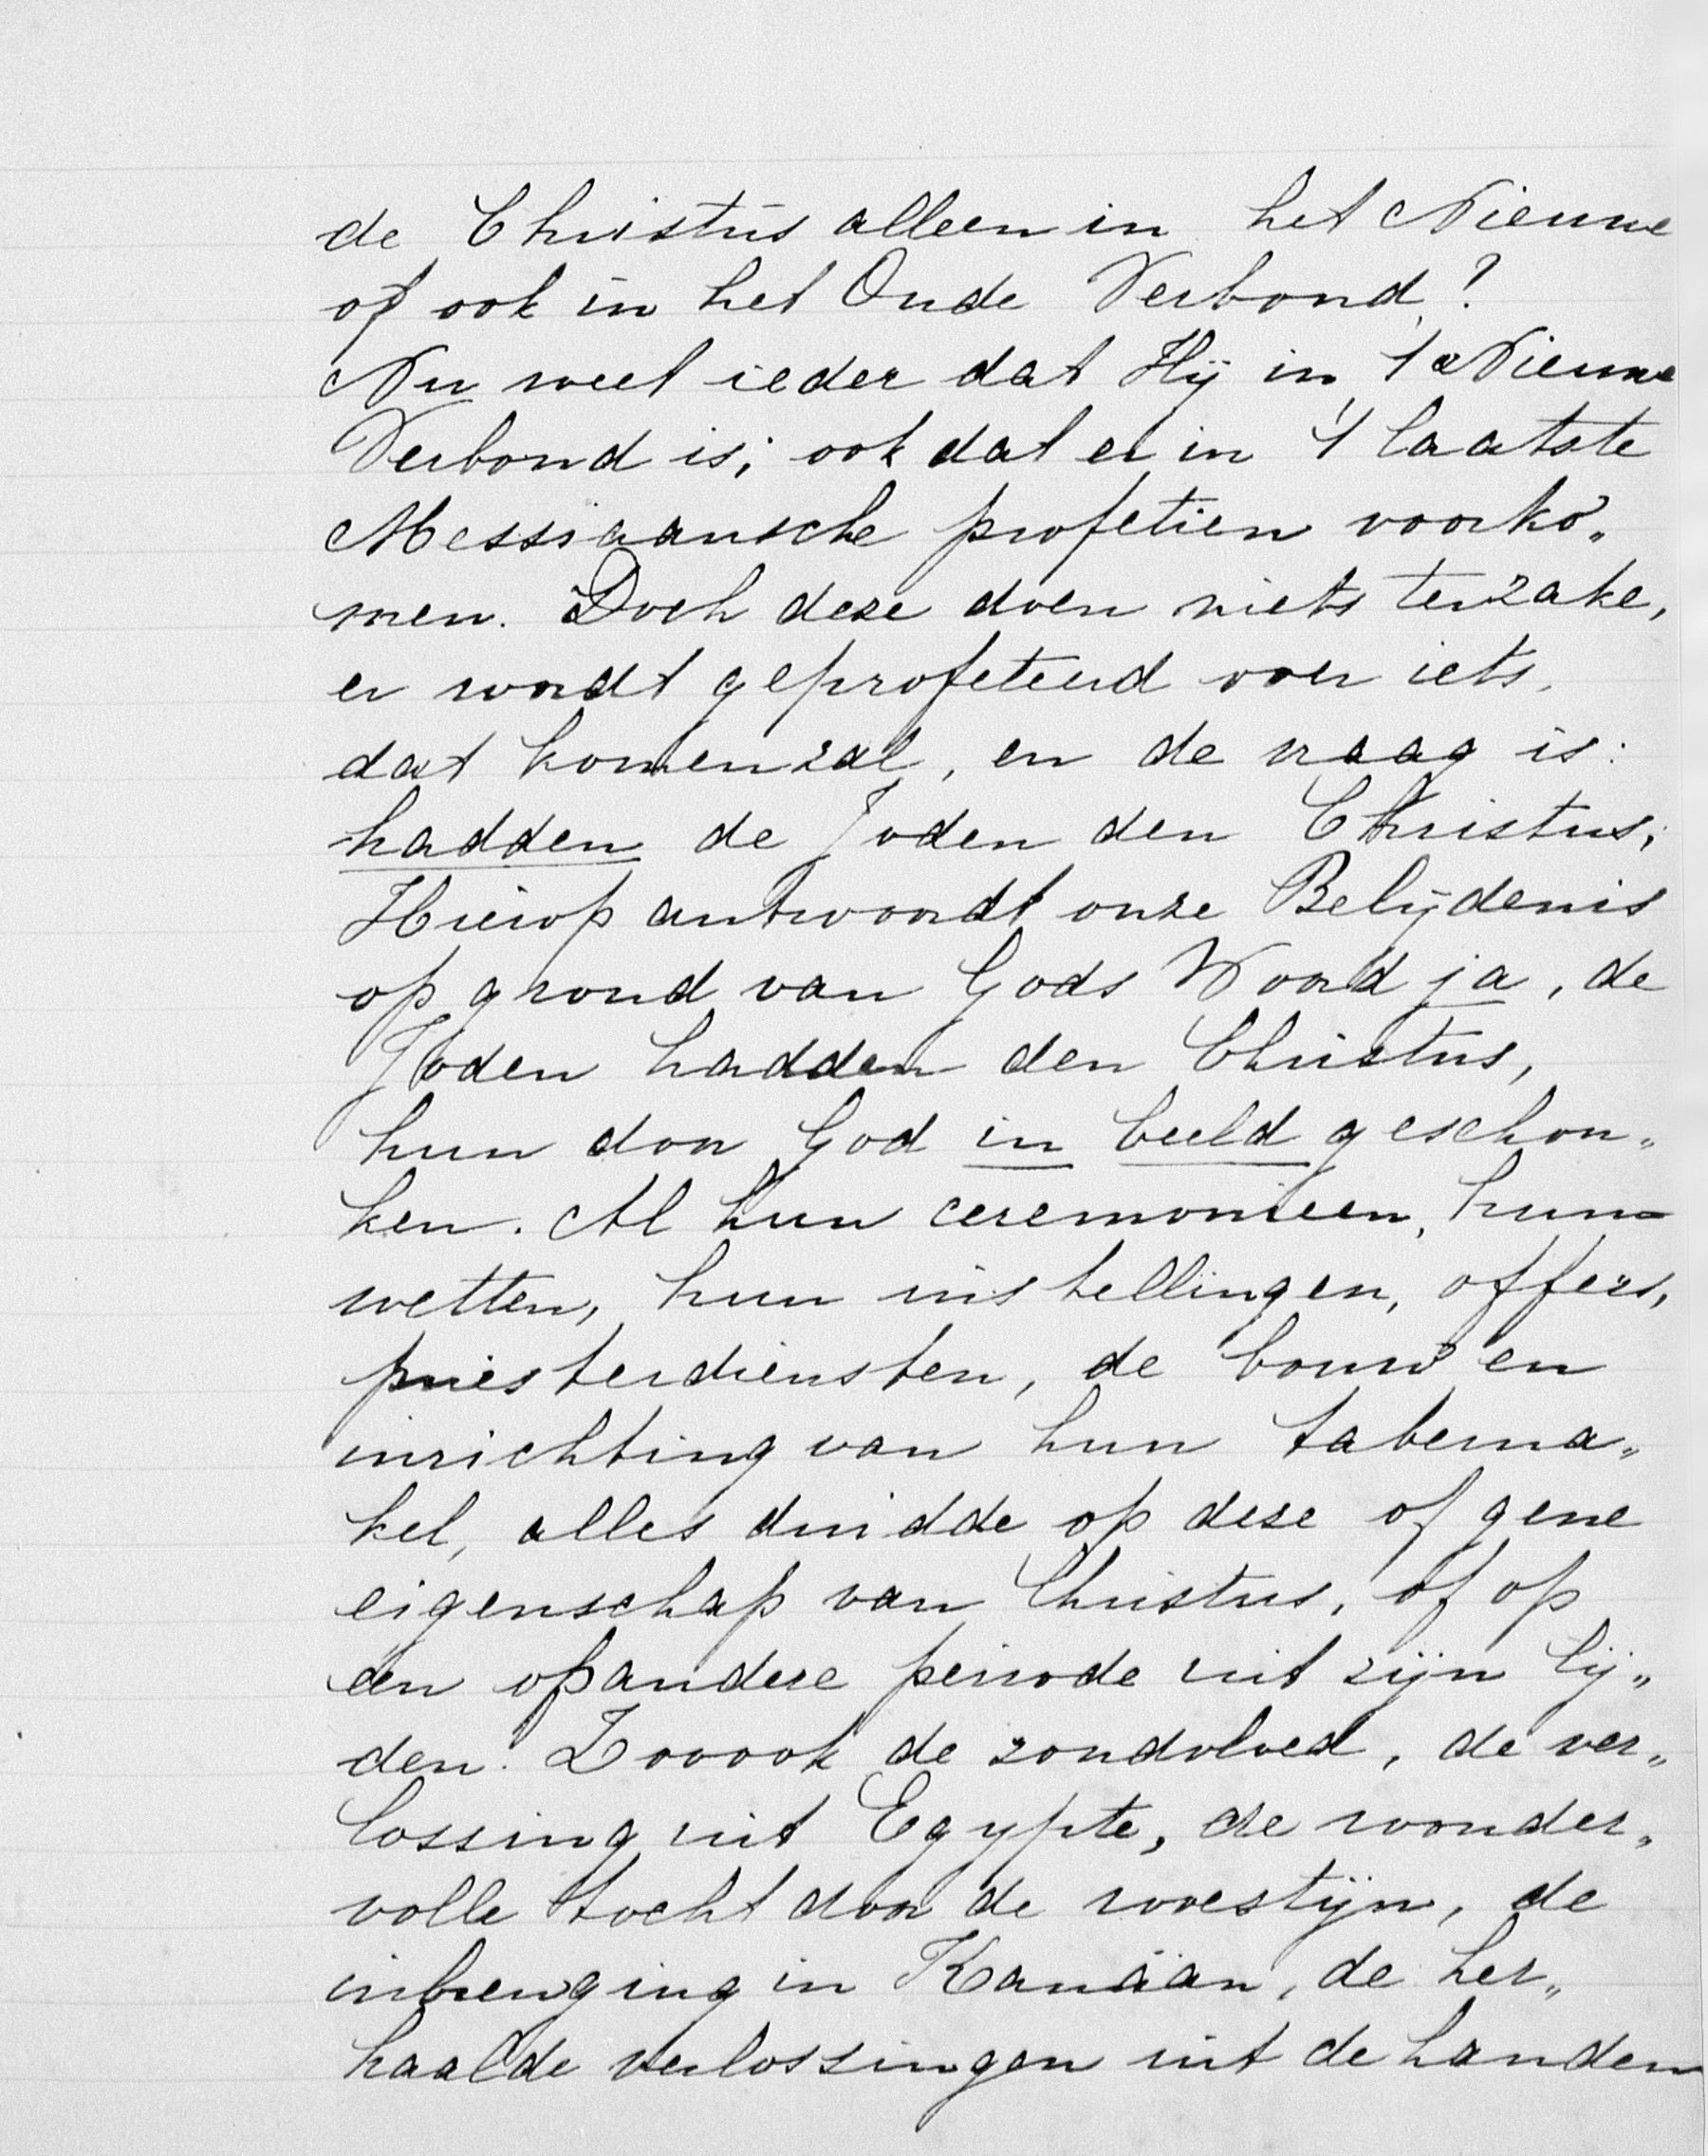 de Christus alleen in het Nieuwe
of ook in het Oude Verbond?
Nu weet ieder dat Hij in 't Nieuwe
Verbond is; ook dat er in 't laatste
Messiaansche profetien voorko„
men. Doch deze doen niets terzake,
er wordt geprofeteerd over iets,
dat komen zal, en de vraag is:
hadden de Joden den Christus;
Hierop antwoordt onze Belijdenis
op grond van Gods Woord ja, de
Joden hadden den Christus,
hun door God in beeld geschon„
ken. Al hun ceremonieen, hun
wetten, hun instellingen, offers,
priesterdiensten, de bouw en
inrichting van hun taberna„
kel, alles duidde op deze of gene
eigenschap van Christus, of op
een of andere periode uit zijn lij„
den. Zooook de zondvloed, de ver„
lossing uit Egypte, de wonder„
volle tocht door de woestijn, de
inbrenging in Kanäan, de her„
haalde verlossingen uit de handen